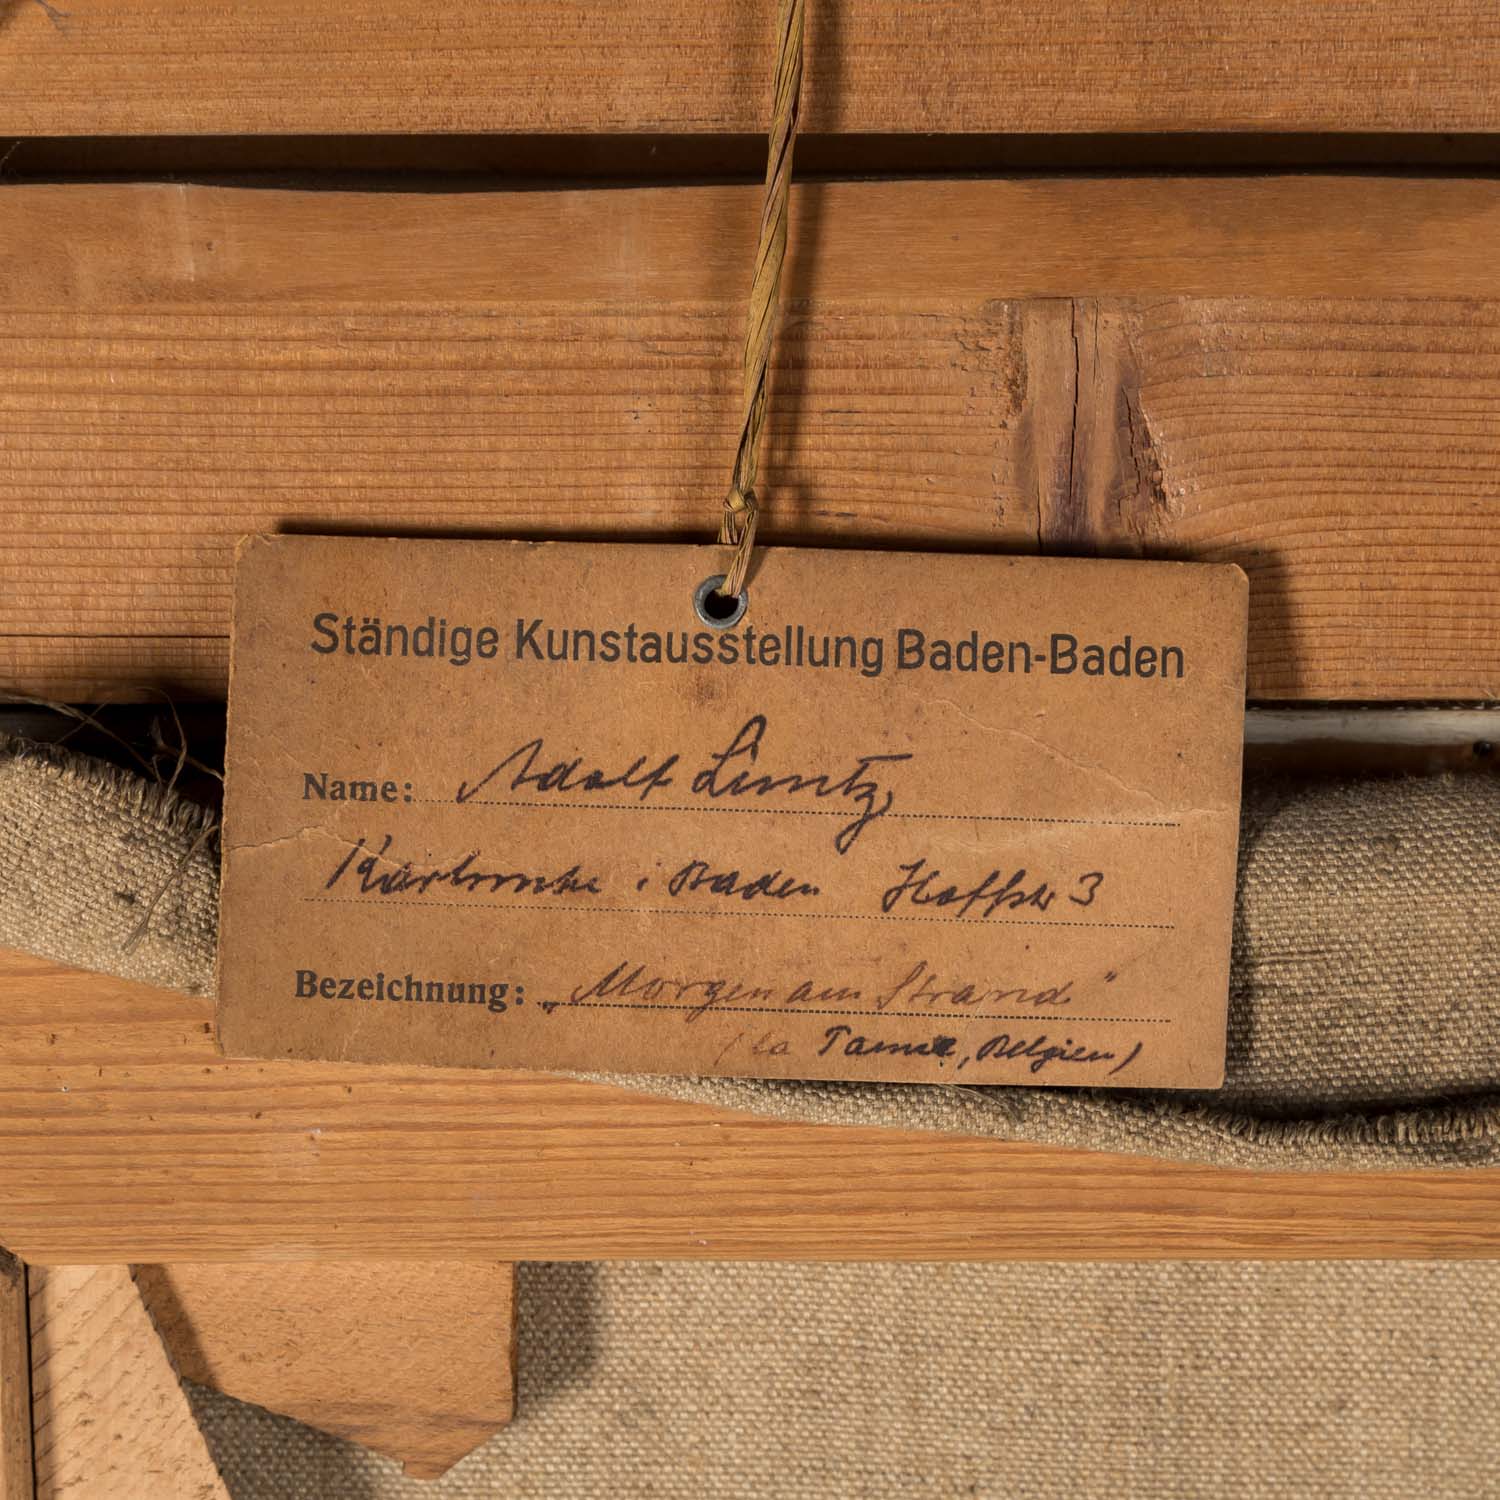 Ständige Kunstausstellung Baden-Baden
Name: Adolf Luntz,
Karlsruhe i Baden Hoffstr 3
Bezeichnung: „Morgen am Strand"
(La Panne, Belgien)